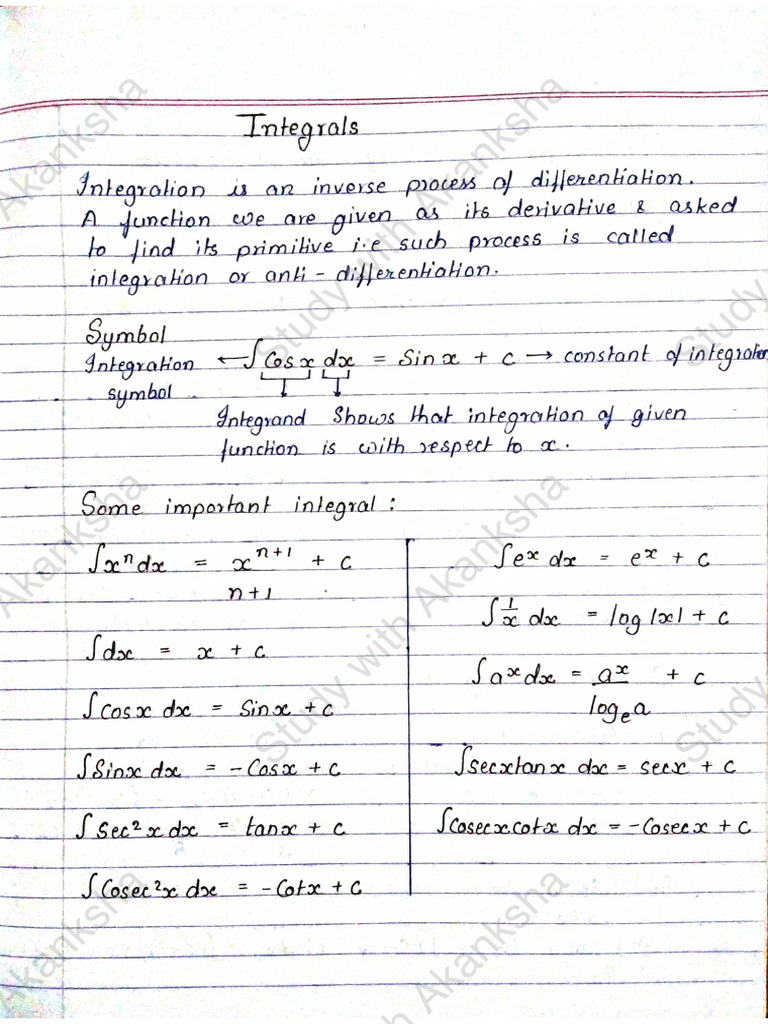 Integrals
Integration is an inverse process of differentiation.
A function we are given as its derivative & asked
to find its primitive i.e such process is called
integration or anti-differentiation.
Symbol
Integration symbol ← ∫ Cos x dx = Sin x + c → constant of integration
Integrand Shows that integration of given
function is with respect to x.
Some important integral :
∫xⁿ dx = xⁿ⁺¹/n+1 + c
∫dx = x + c
∫Cosx dx = Sinx + c
∫Sinx dx = -Cosx + c
∫Sec²x dx = tanx + c
∫Cosec²x dx = -Cotx + c
∫eˣ dx = eˣ + c
∫1/x dx = log|x| + c
∫aˣ dx = aˣ/logₑa + c
∫secxtanx dx = secx + c
∫Cosecxcotx dx = -Cosecx + c
Study with Akanksha